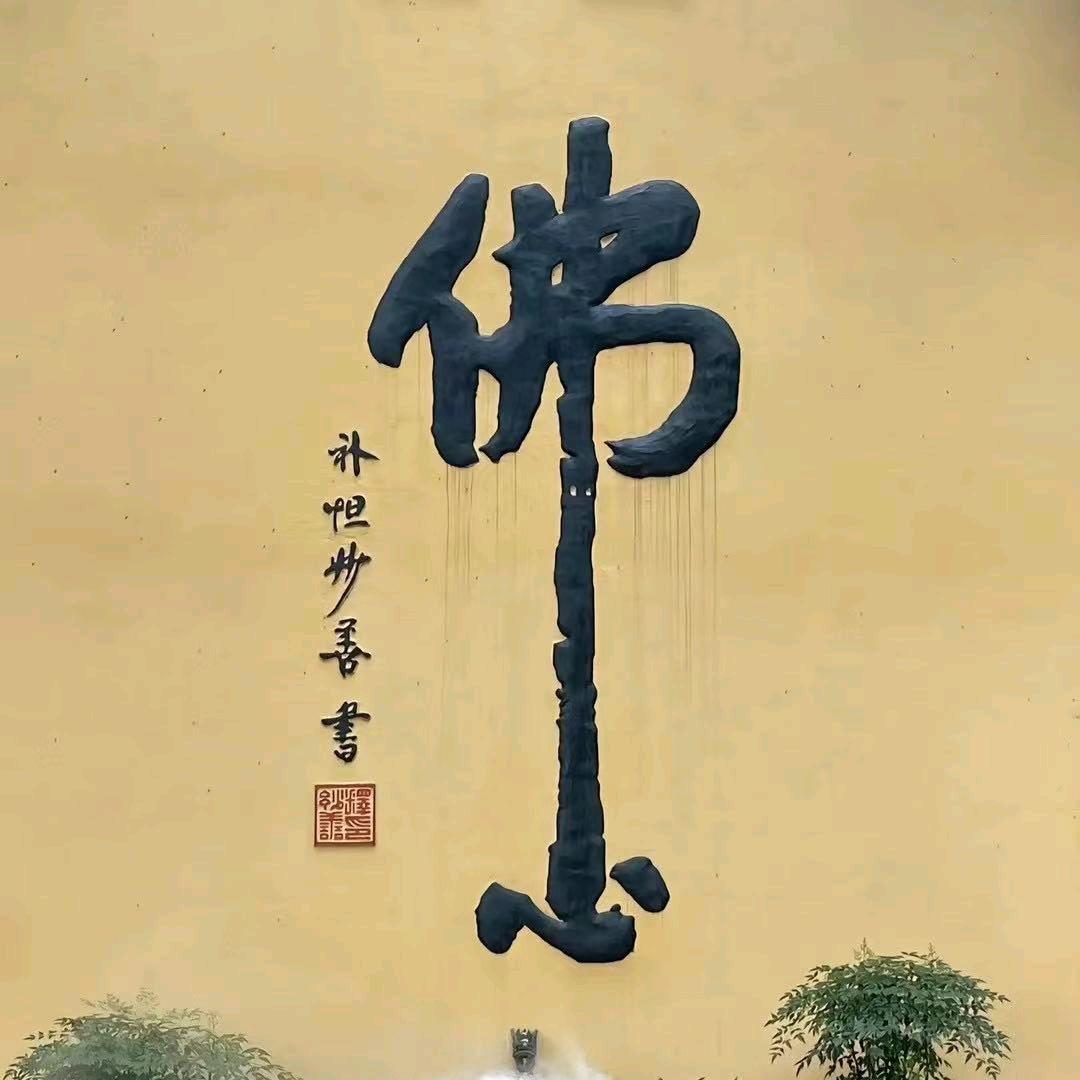 佛心
补怛妙善書